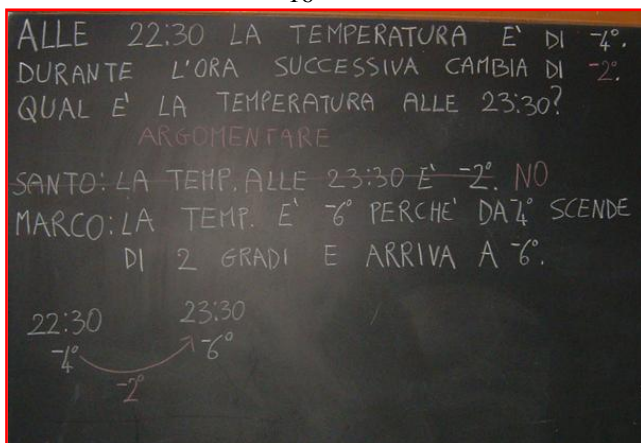 ALLE 22:30 LA TEMPERATURA E' DI -4°.
DURANTE L'ORA SUCCESSIVA CAMBIA DI -2°.
QUAL E' LA TEMPERATURA ALLE 23:30?
ARGOMENTARE
SANTO: LA TEMP. ALLE 23:30 E' -2°. NO
MARCO: LA TEMP. E' -6° PERCHE' DA -4° SCENDE
DI 2 GRADI E ARRIVA A -6°.
22:30 23:30
-4° -6°
-2°